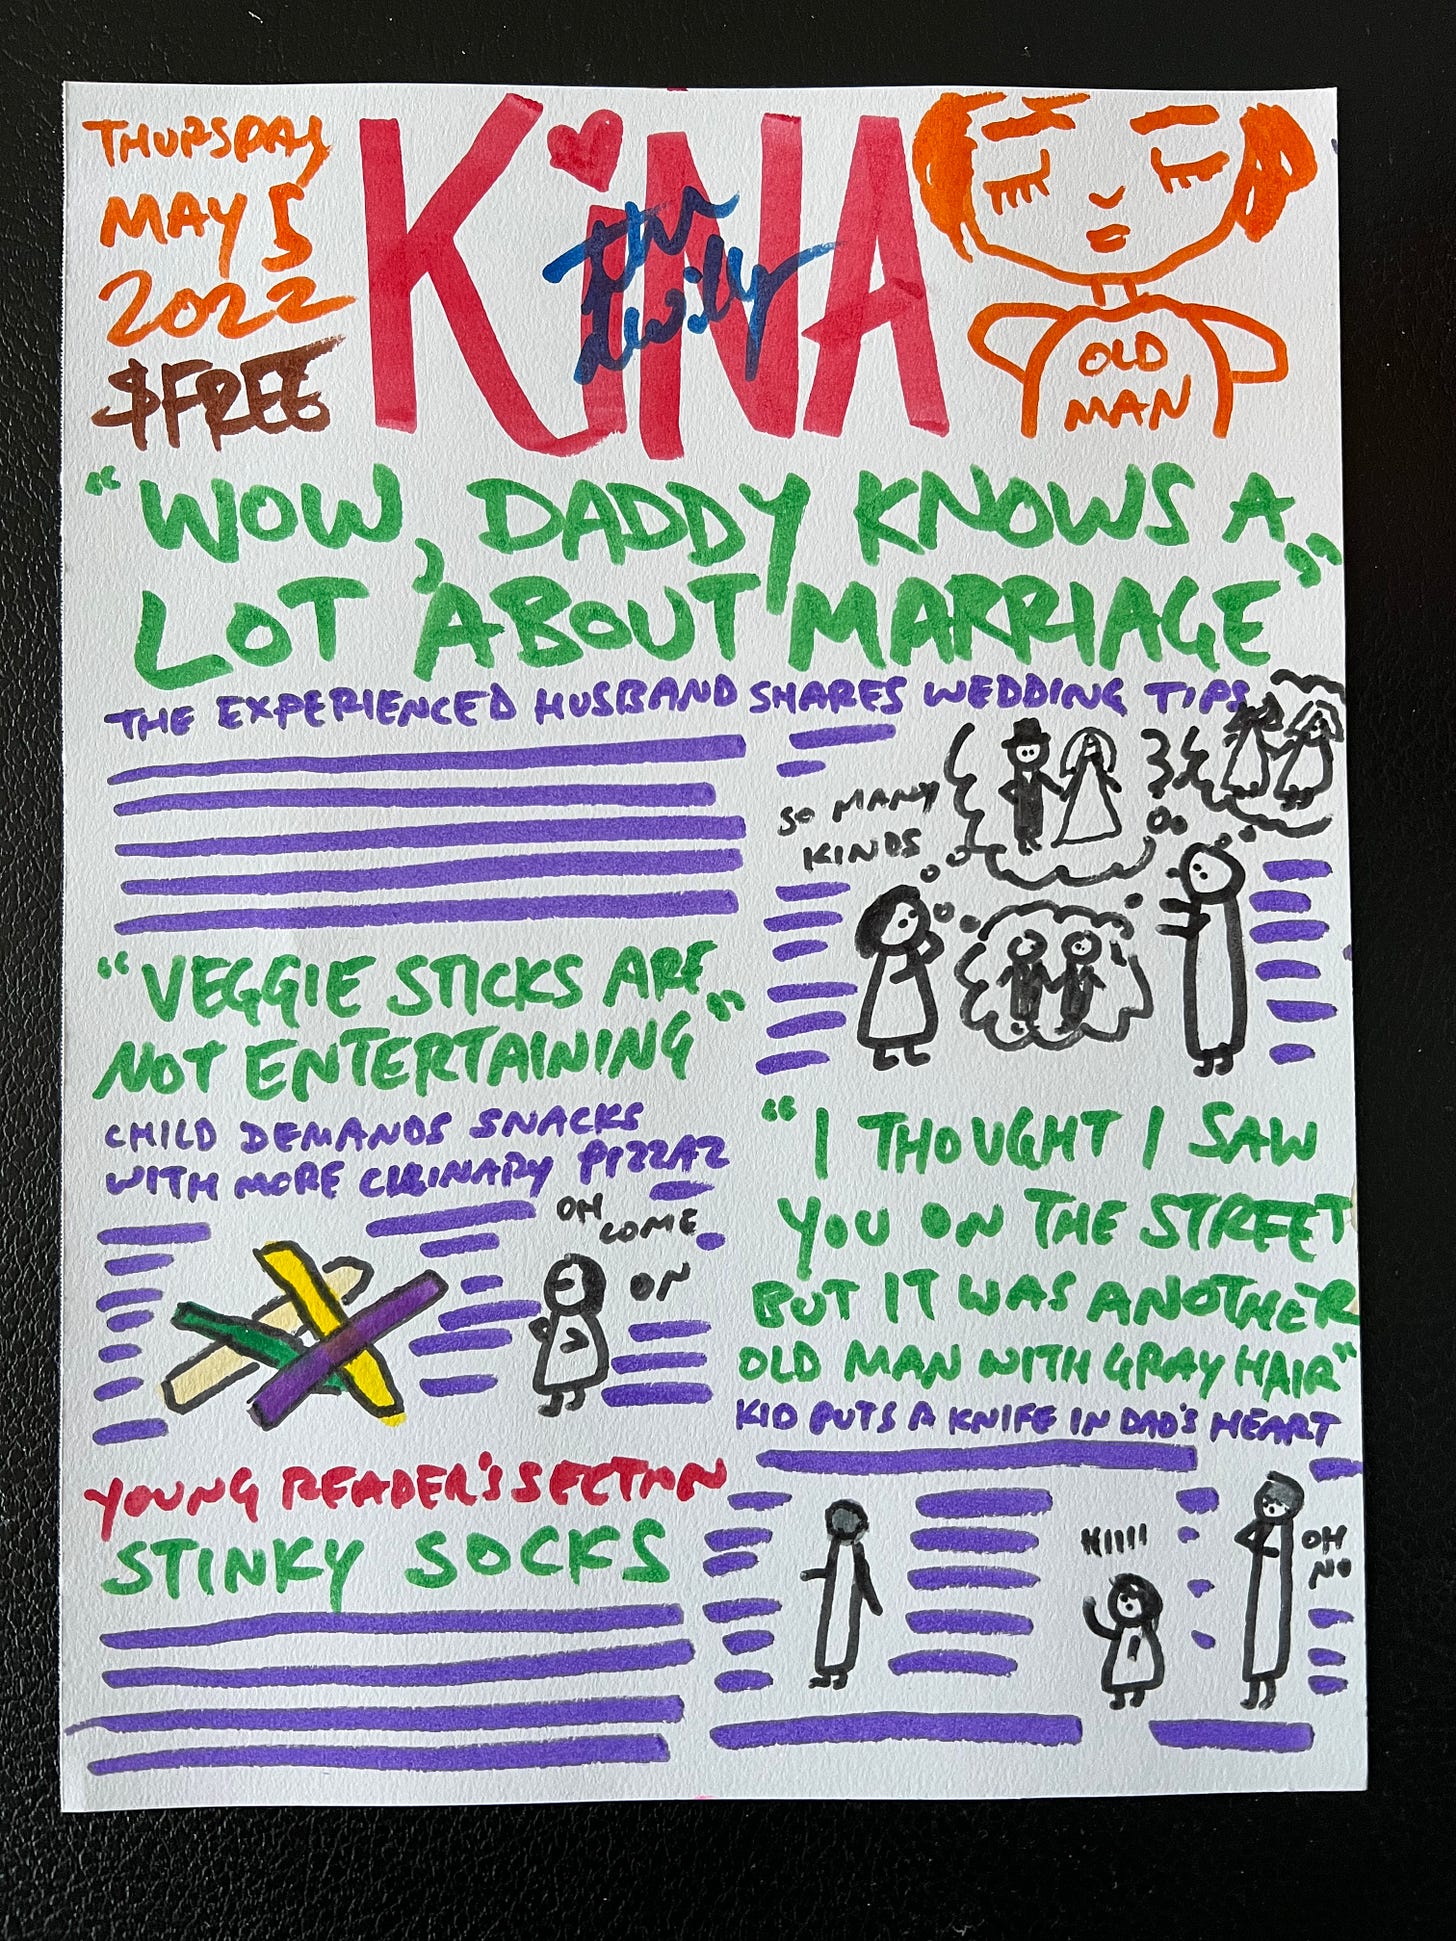 THURSDAY
MAY 5
2022
$FREE
KiNA
the daily
OLD
MAN
"WOW, DADDY KNOWS A
LOT ABOUT MARRIAGE"
THE EXPERIENCED HUSBAND SHARES WEDDING TIPS
SO MANY
KINDS
"VEGGIE STICKS ARE
NOT ENTERTAINING"
CHILD DEMANDS SNACKS
WITH MORE CULINARY PIZZAZ
OH
COME
ON
"I THOUGHT I SAW
YOU ON THE STREET
BUT IT WAS ANOTHER
OLD MAN WITH GRAY HAIR"
KID PUTS A KNIFE IN DAD'S HEART
HIIII
OH
NO
YOUNG READER'S SECTION
STINKY SOCKS